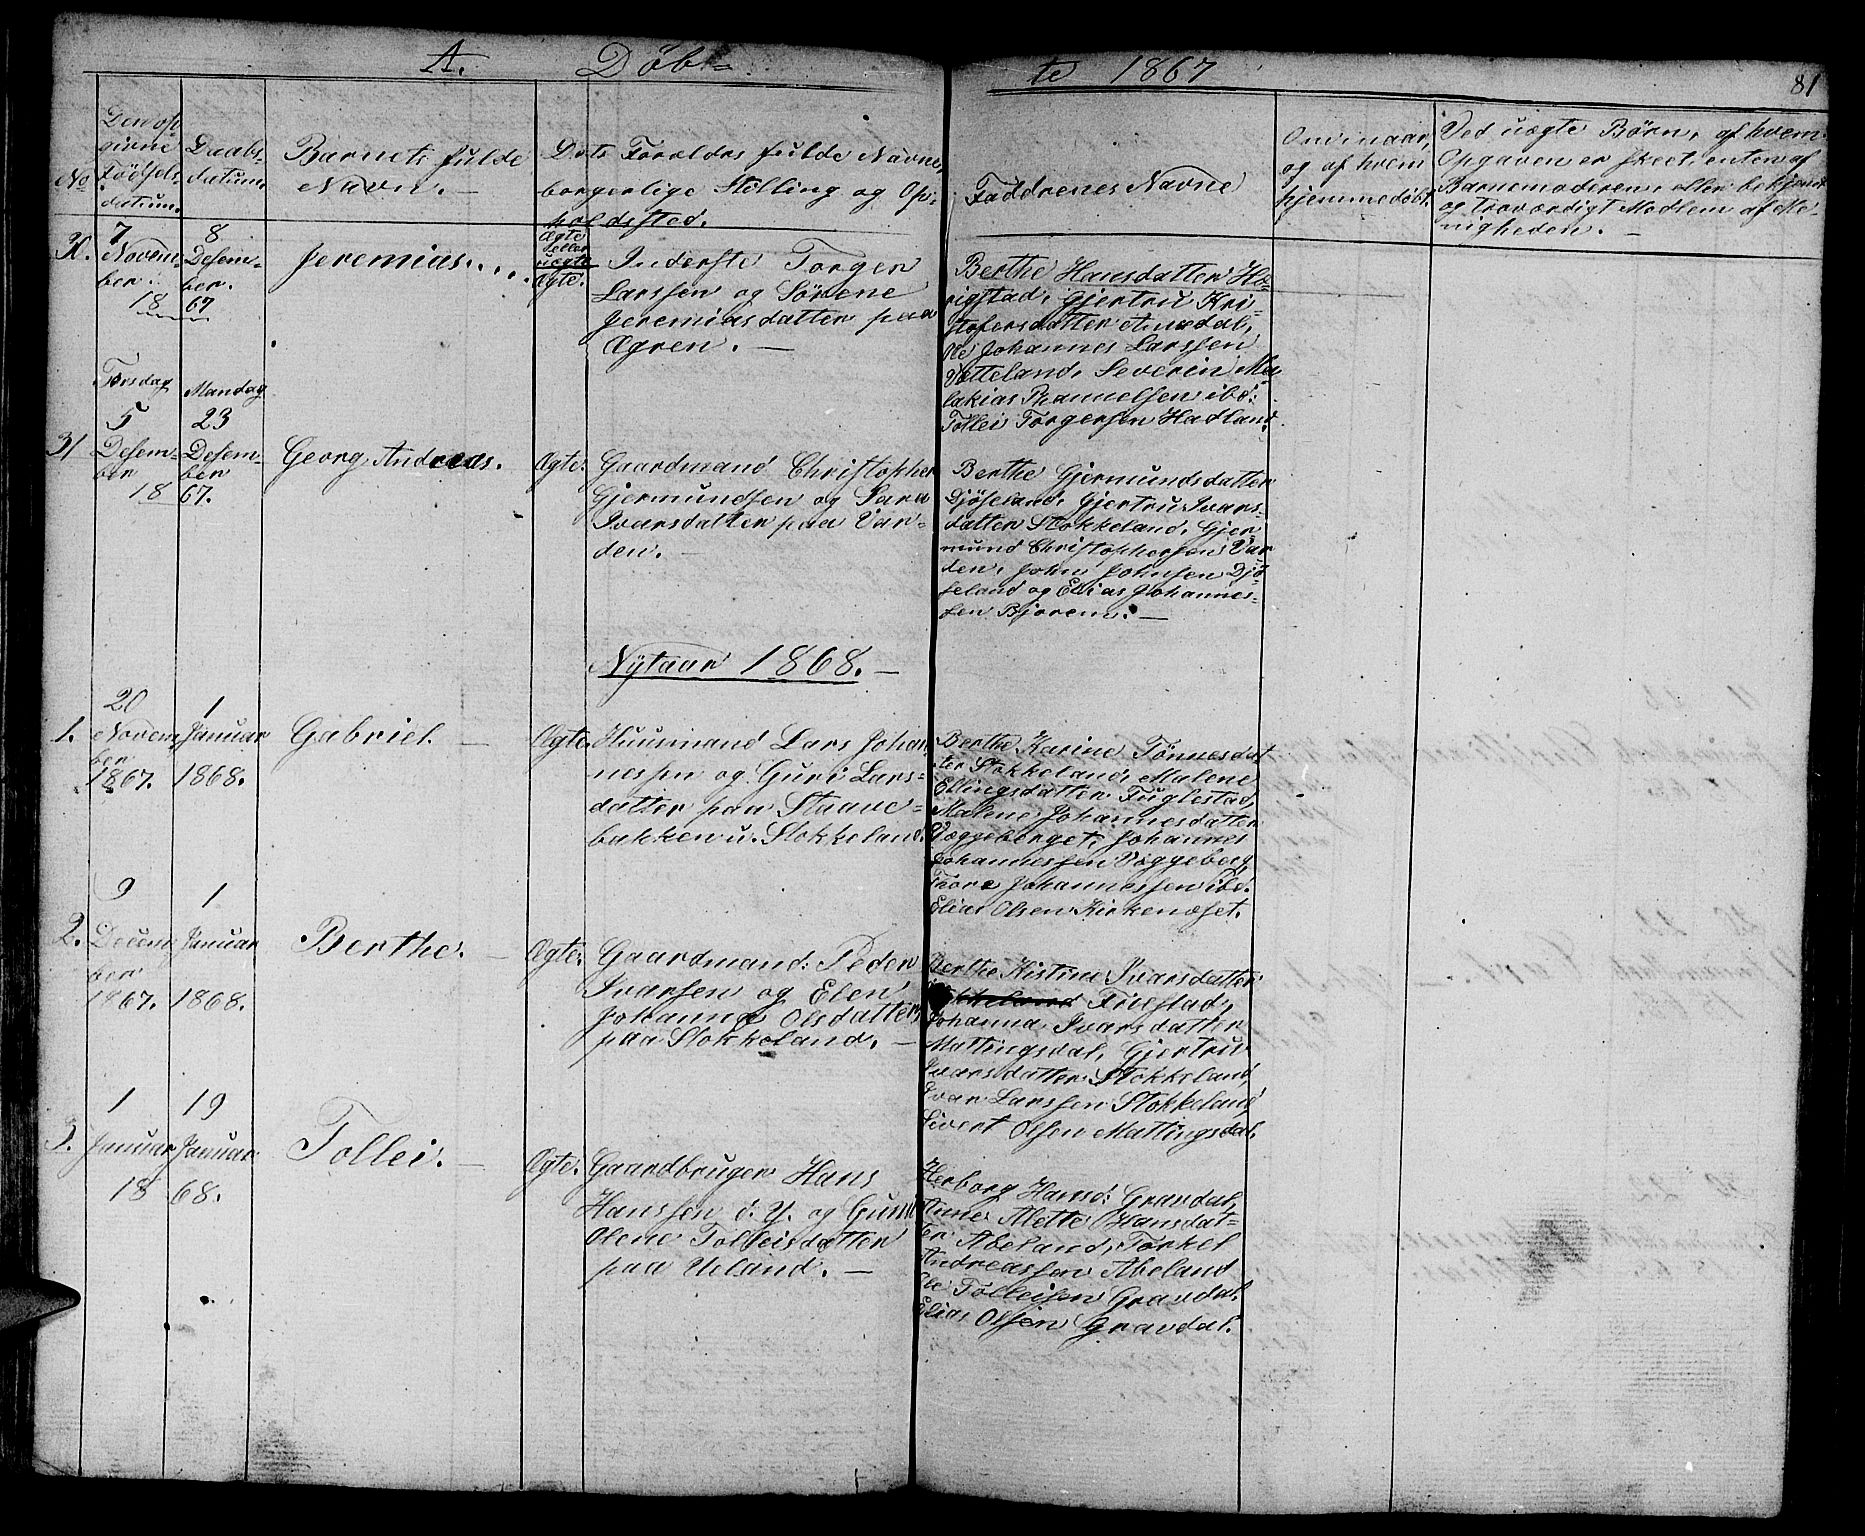 A. Döb=
te 1867
81
No
Den op
givne
Födsels-
datum.
Daabs-
datum.
Barnets fulde
Navn. —
Dets Foreldres fulde Navne,
borgerlige Stilling og Op-
holdssted.
Ægte
eller
uægte
Faddrenes Navne
Om, naar,
og af hvem
hjemmedöbt.
Ved uægte Börn, af hvem
Opgaven er skeet, enten af
Barnemoderen, eller bekjendt
og troværdigt Medlem af Me-
nigheden. —
30.
7
Novem-
ber.
18
8
Desem-
ber.
67
Jeremias....
Ægte.
Inderste Torger
Larssen og Sörene
Jeremiasdatter paa
Ægren. —
Berthe Hansdatter Hö-
rigstad, Gjertru Kri-
stofersdatter Amdal,
Ole Johannes Larssen
Vatteland, Severin Ma-
lakias Phanuelsen ibd:
Tollei Torgersen Hadland.
Torsdag
5
Desem-
ber
18
Mandag
23
Desem-
ber
67.
31
Georg Andreas.
Ægte.
Gaardmand Christopher
Gjermundsen og Sara
Ivarsdatter paa Var-
den. —
Berthe Gjermundsdatter
Djöseland, Gjertru Ivars-
datter Stokkeland, Gjer-
mund Christophersen Var
den, John Johnsen Djö-
seland og Elias Johannes-
sen Bjorem. —
Nytaar 1868. —
1.
20
Novem
ber
1867.
1
Januar
1868.
Gabriel. —
Ægte.
Huusmand Lars Johan
nessen og Guri Lars-
datter paa Staave-
bakken u. Stokkeland.
Berthe Karine Tönnesdat
ter Stokkeland, Malene
Ellingsdatter Fuglestad,
Malene Johannesdatter
Væggeberget, Johannes
Johannessen Væggeberg,
Tore Johannessen ibd.
Elias Olsen Kirkenæset.
2.
9
Decem
ber
1867.
1
Januar
1868.
Berthe. —
Ægte.
Gaardmand: Peder
Ivarsen og Elen
Johanne Olsdatter
paa Stokkeland. —
Berthe Kistine Ivarsdatter
Fuestad,
Johanna Ivarsdatter
Mattingsdal, Gjertru
Ivarsdatter Stokkeland,
Ivar Larssen Stokkeland,
Sivert Olsen Mattingsdal.
3.
1
Januar
18
19
Januar
68.
Tollei. —
Ægte.
Gaardbruger Hans
Hanssen d. Y. og Guni
Olene Tolleisdatter
paa Ueland. —
Herborg Hansd: Gravdal,
Anne Alette Hansdat-
ter Abeland, Torkel
Andreassen Abeland
Ole Tolleisen Gravdal.
Elias Olsen Gravdal.